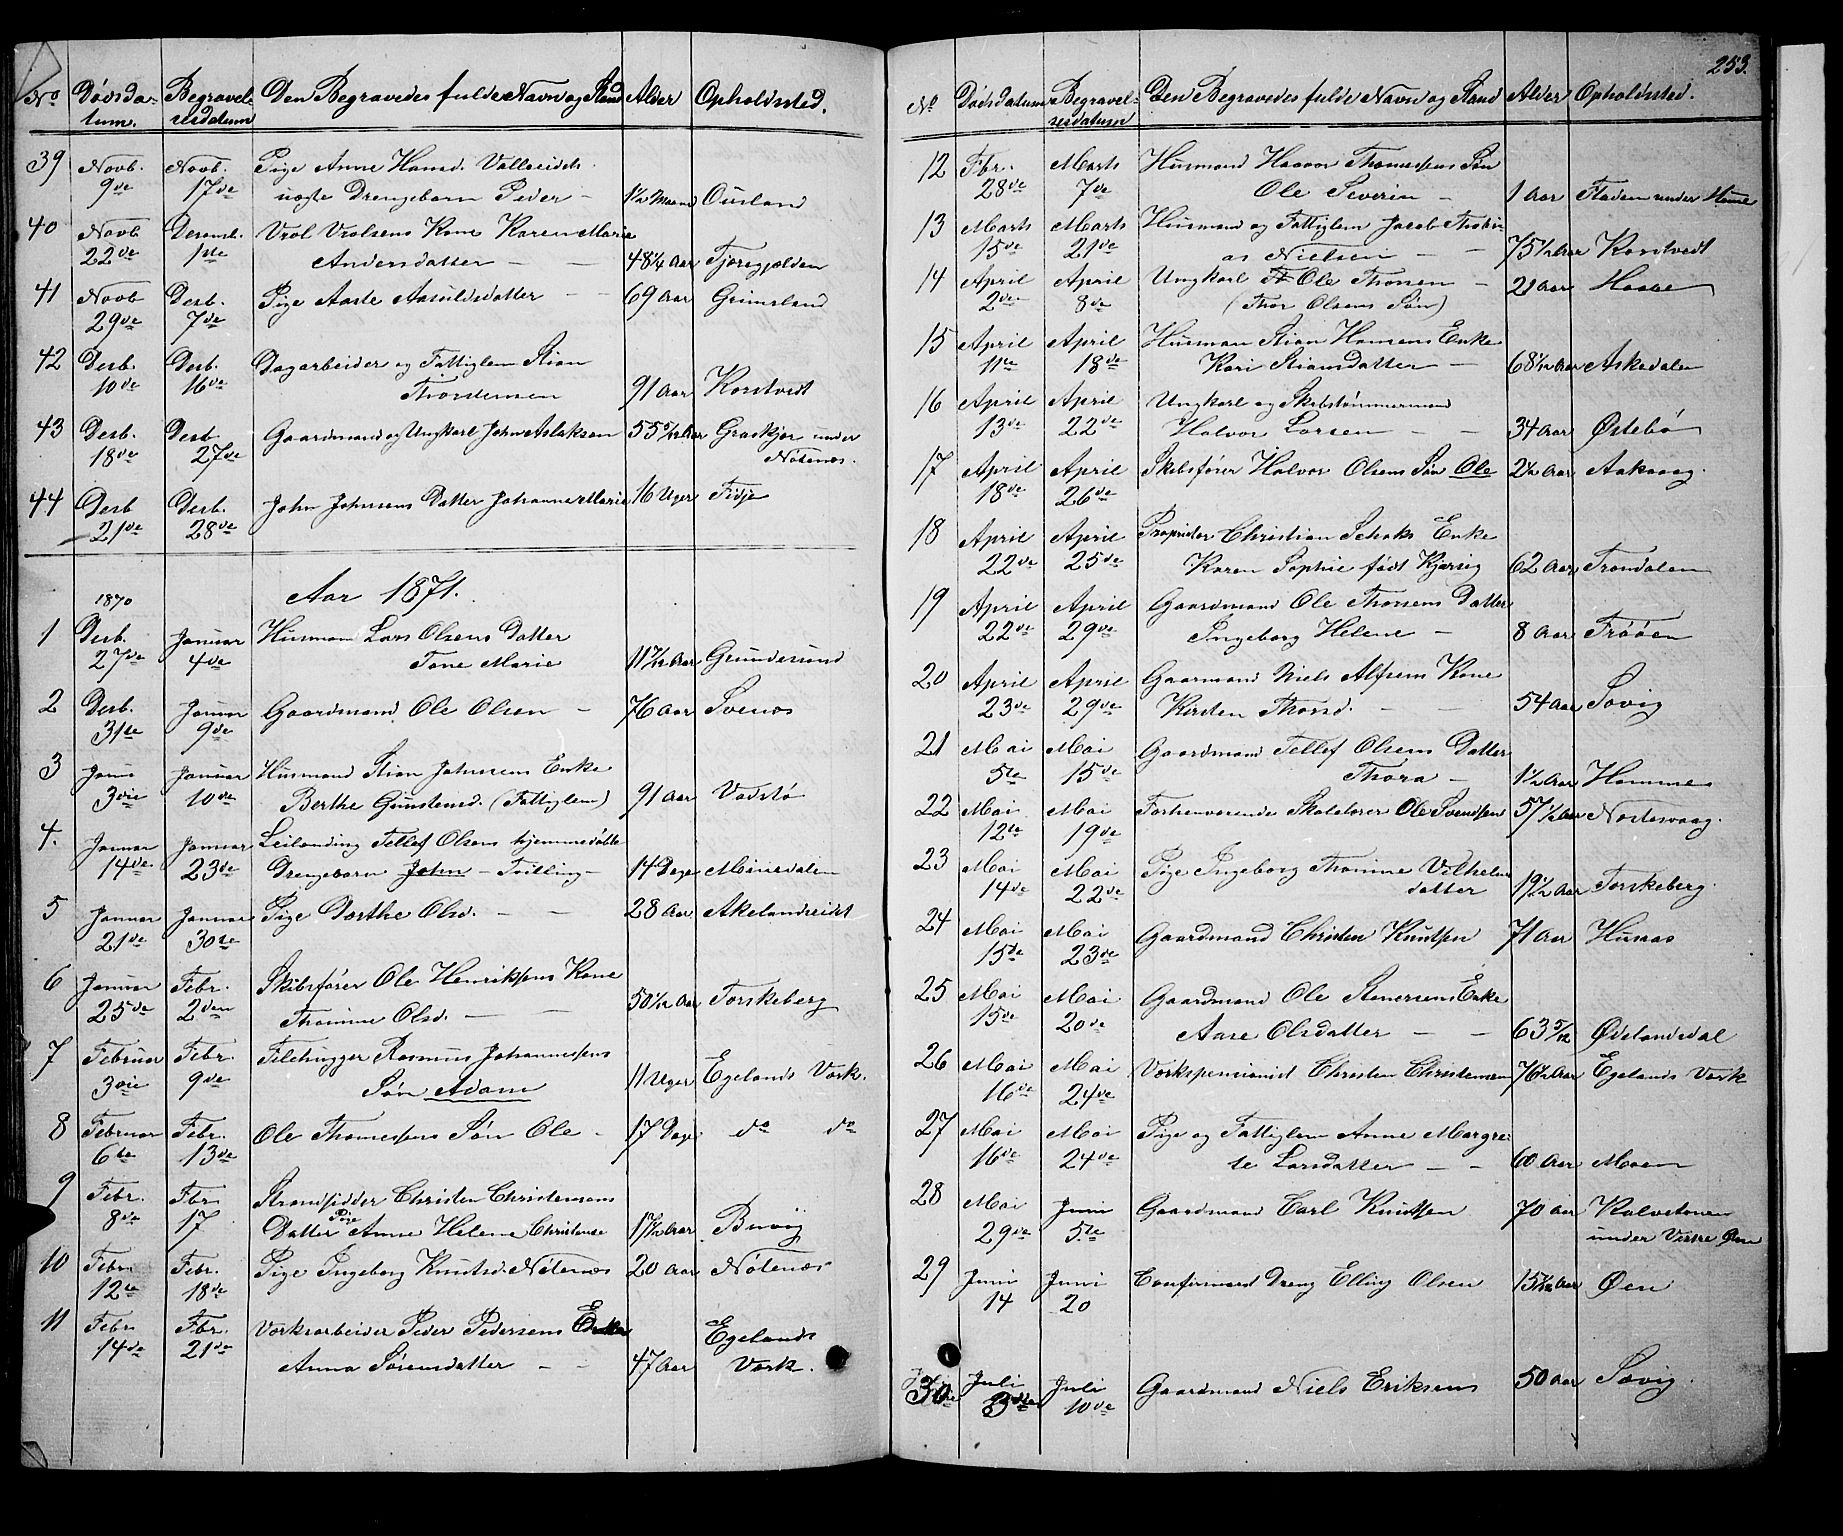 No Dødsda- Begravel- Den Begravedes fulde Navn og Stand Alder Opholdssted.
tum. sesdatum
39 Novb. Novb. Pige Anne Hansd. Valleeidets
9de 17de uægte Drengebarn Peder – 1½ Maaned Ousland
40 Novb Decemb. Vrol Vrolsens Kone Karen Marie
22de 1ste Andersdatter – – 48¼ Aar
41 Novb Decb. Pige Aaste Aasuldsdatter – – 69 Aar Grimsland
29de 7de
42 Decb. Decb. Dagarbeider og Fattiglem Stian
10de 16de Thorstensen 91 Aar Korstvedt
43 Decb. Decb Gaardmand og Ungkarl John Aslaksen 55 5/12 Aar Graskjær under
18de 27de Nøtenæs.
44 Decb Decb. John Johnsens Datter Johanne Marie 16 Uger Fidje
21de 28de
1870 Aar 1871.
1 Decb. Januar Husmand Lars Olsens Datter
27de 4de Tone Marie 11 7/12 Aar Grundesund
2 Decb. Januar Gaardmand Ole Olsen – 76 Aar Svenæs
31te 9de
3 Janu Januar Husmand Stian Johnsens Enke
3die 10de Berthe Gunstensd. (Fattiglem) 91 Aar Vadstø
4. Januar Januar Leilænding Tellef Olsens hjemmedøbte
14de 23de Drengebarn John – Tvilling – 14 Dage Minesdalen
5 Januar Januar Pige Dorthe Olsd. – – 28 Aar Akelandseidet
21de 30te
6 Januar Febr. Skibsfører Ole Henriksens Kone
25de 2den Thomine Olsd. – – 50 1/12 Aar Torskeberg
7 Februar Febr. Filehugger Rasmus Johannesens
3die 9de Søn Adam 11 Uger Egelands Værk.
8 Februar Febr. Ole Thomessens Søn Ole – 17 Dage do do
6te 13de
9 Febr. Fbr. Strandsidder Christen Christensens
8de 17 Datter Pige Anne Helene Christense 17½ Aar Buvig
10 Febr Febr. Pige Ingeborg Knutsd. Nøtenæs 20 Aar Nøtenæs
12te 18de
11 Febr Fbr. Værksarbeider Peder Pedersens Enke Egelands
14de 21de Anna Sørensdatter – – 47 Aar Værk.
253.
No Dødsdatum Begravel- Den Begravedes fulde Navn og Stand Alder Opholdssted.
sesdatum
12 Fbr. Marts Husmand Haavor Thomessens Søn
28de 7de Ole Severin – 1 Aar Fladen under Homme
13 Marts Marts Husmand og Fattiglem Jacob Thobi-
15de 21de as Nielsen – 75½ Aar Korstvedt
14 April April Ungkarl Ole Thorsen – 21 Aar Haabe
2den 8de (Thor Olsens Søn)
15 April April Husman Stian Hansens Enke
11te 18de Kari Stiansdatter – 68 1/12 Aar Askedalen
16 April April Ungkarl og Skibstømmermand
13de 22de Halvor Larsen – – 34 Aar Østebø
17 April April Skibsfører Halvor Olsens Søn Ole 2½ Aar Aakvaag.
18de 26de
18 April April Proprietær Christian Scheks Enke
22de 25de Karen Sophie født Kjørvig 62 Aar Trondalen
19 April April Gaardmand Ole Thorsens Datter
22de 29de Ingeborg Helene – 8 Aar Frøøen
20 April April Gaarmand Niels Alfsens Kone
23de 29de Kirsten Thorsd. – – 54 Aar Søvig
21 Mai Mai Gaardmand Tellef Olsens Datter
5te 15de Thora – 1½ Aar Homme
22 Mai Mai Forhenværende Skolelærer Ole Svendsen 57½ Aar
12te 19de
23 Mai Mai Pige Ingeborg Thomine Vilhelms
14de 22de datter 19½ Aar Torskeberg.
24 Mai Mai Gaardmand Christen Knutsen 71 Aar Husaas
15de 23de
25 Mai Mai Gaardmand Ole Stenersens Enke
15de 20de Aase Olsdatter – – 63 5/12 Ødelandsdal
26 Mai Mai Værkspensionist Christen Christensen 76½ Aar Egelands Værk
16de 24de
27 Mai Mai Pige og Fattiglem Anne Margre-
16de 24de te Larsdatter – – 60 Aar Moen
28 Mai Juni Gaardmand Carl Knutsen 70 Aar Kalvetonen
29de 5te under Vestre Øen
29 Juni Juni Confirmand Dreng Elling Olsen Øen
14 20
30 Juli Juli Gaardmand Niels Eriksens 50 Aar Søvig.
3die 10de